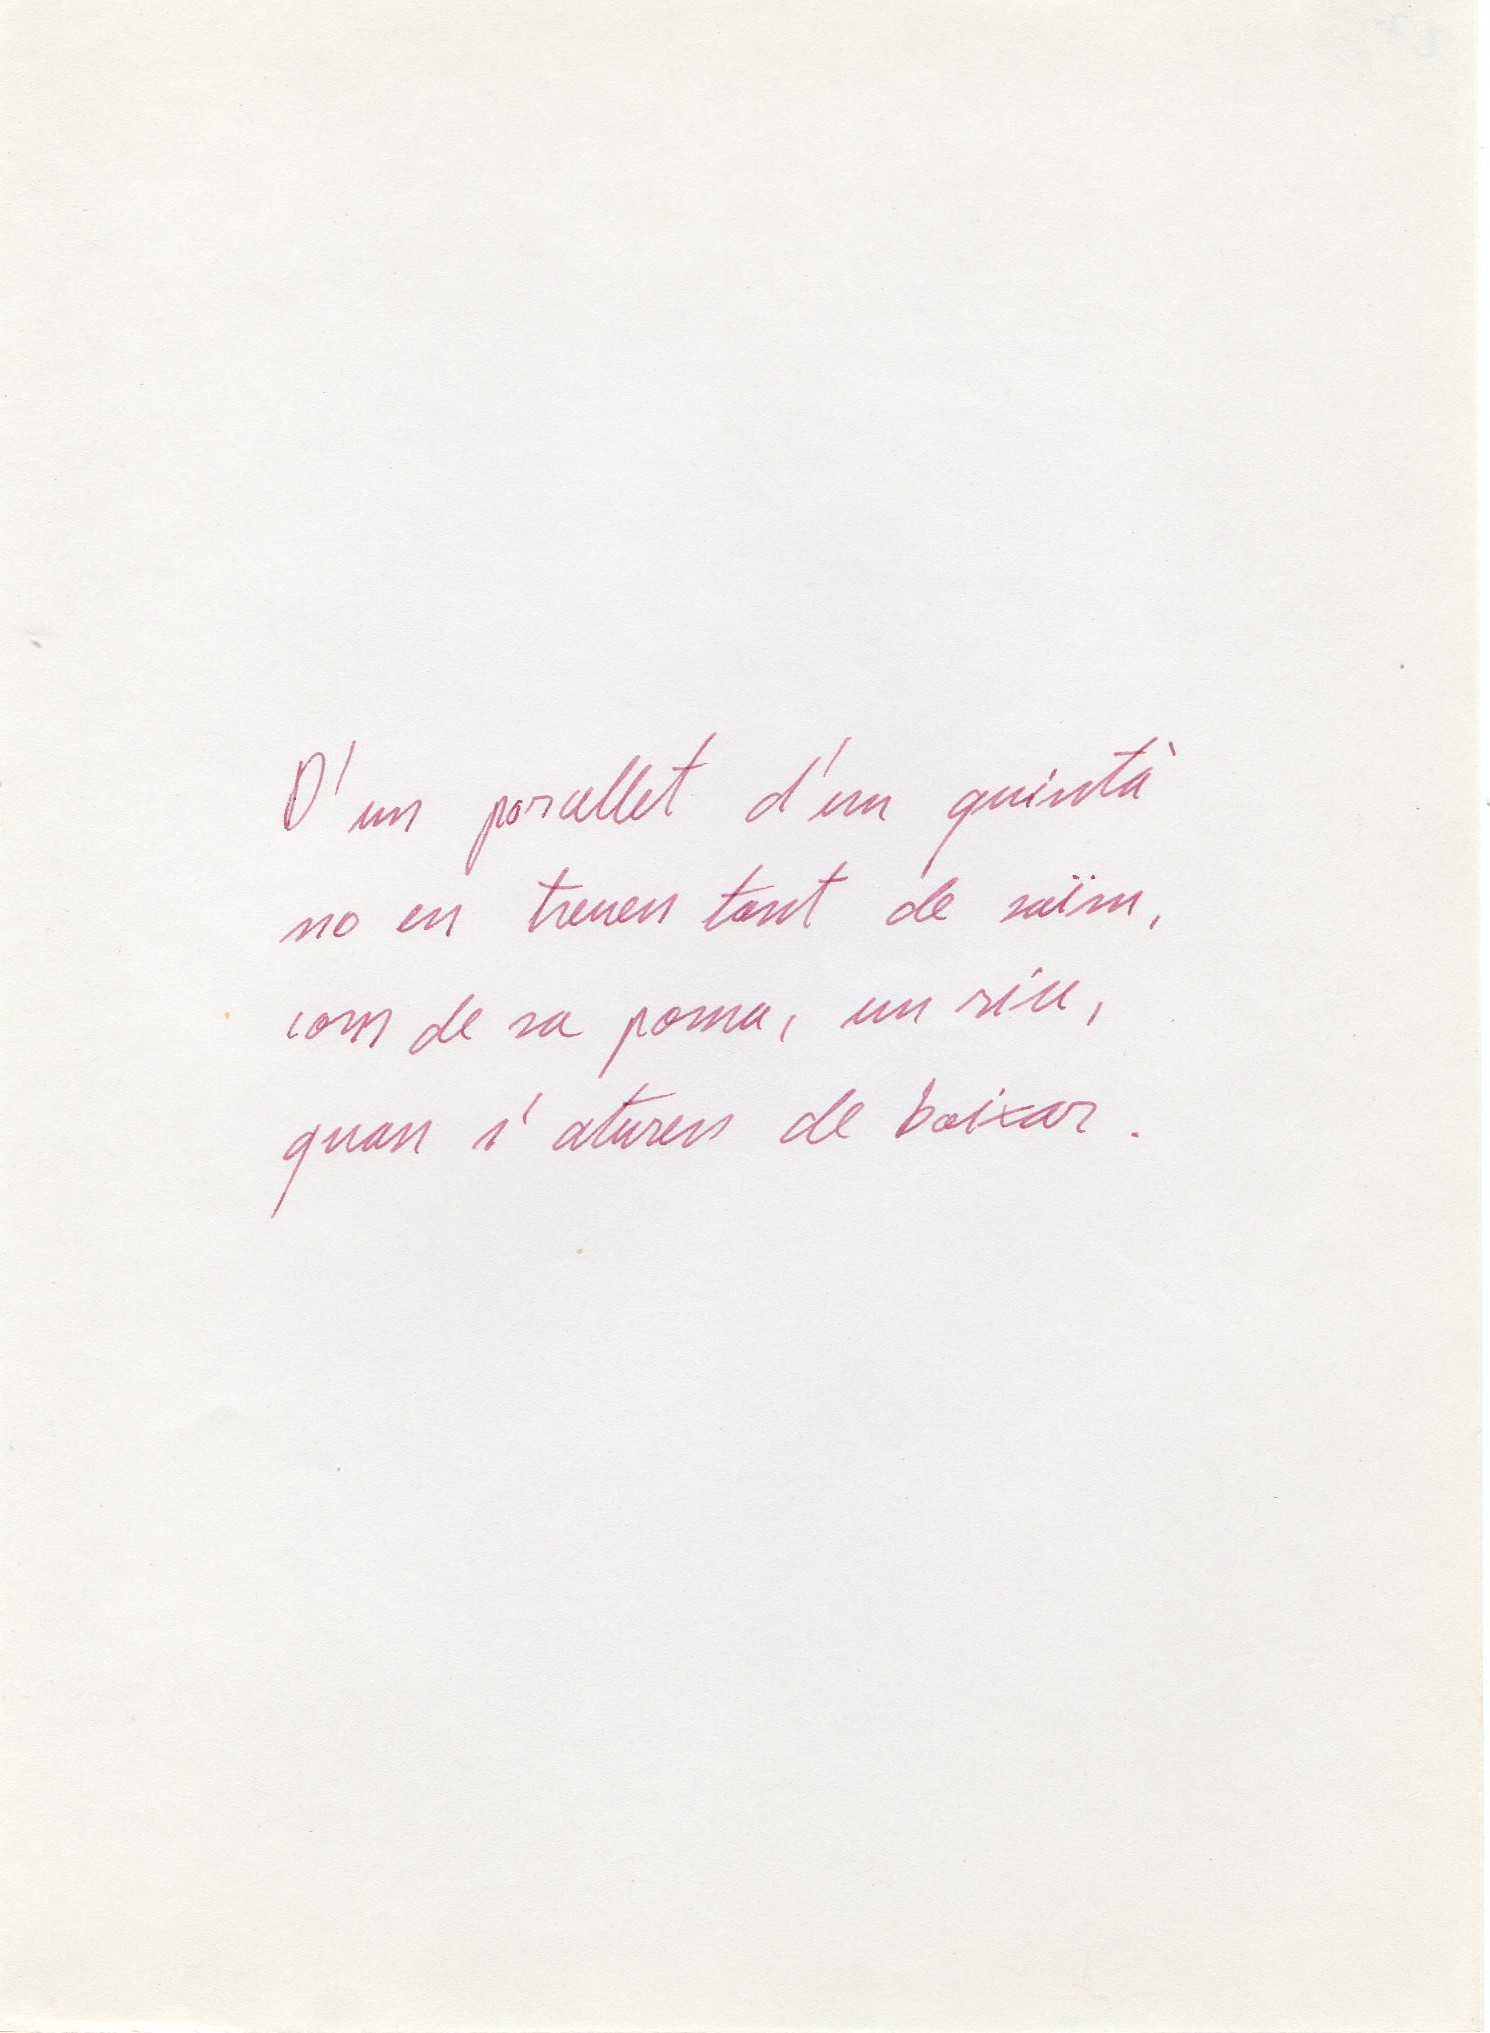 D'un porcellet d'un quintà
no en treuen tant de saïm,
com de sa poma, un riu,
quan s'aturen de baixar.